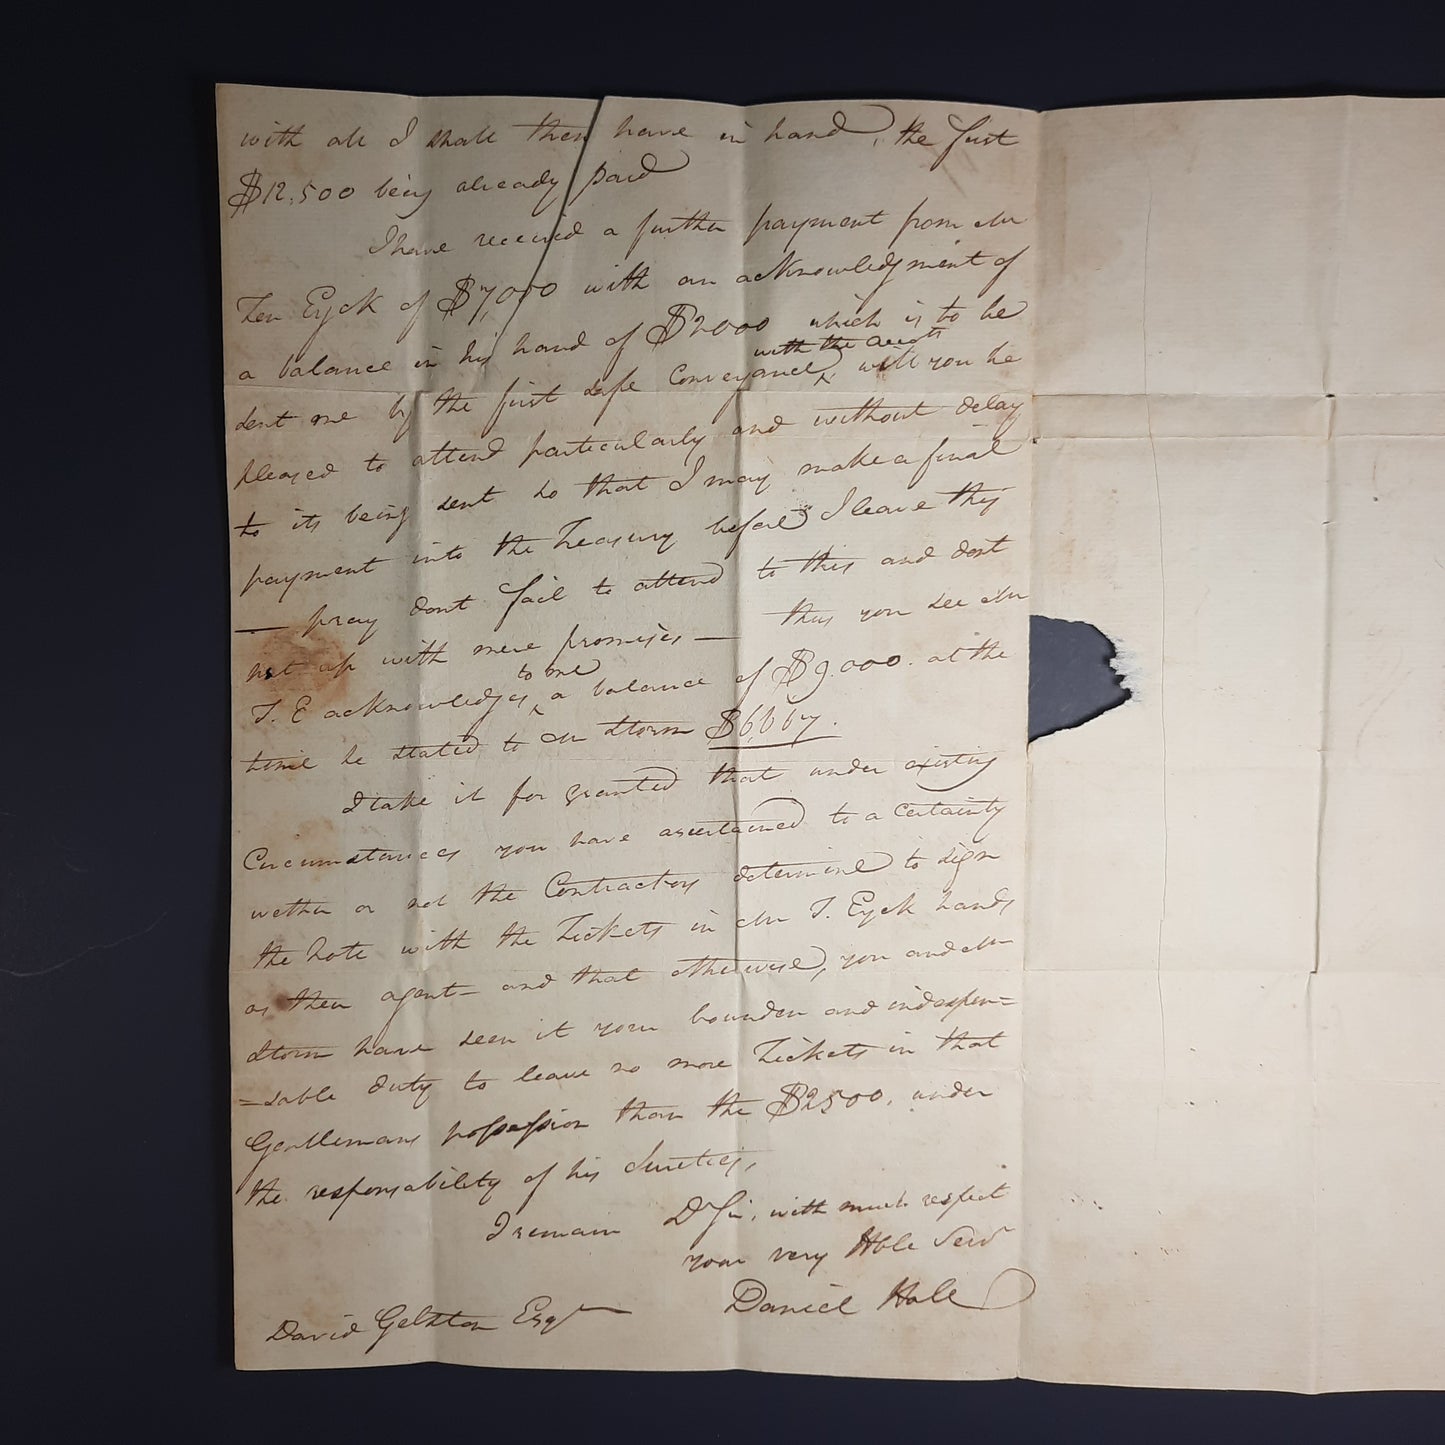 with all I shall then have in hand, the first
$12,500 being already paid
I have received a further payment from Mr
Ten Eyck of $7,000 with an acknowledgment of
a balance in his hand of $2000 which is to be
sent me by the first safe Conveyance with the accots will you be
pleased to attend particularly and without delay
to its being sent so that I may make a final
payment into the Treasury before I leave this
— pray dont fail to attend to this and dont
put up with mere promises — thus you see Mr
T. E acknowledges to me a balance of $9.000. at the
time he stated to Mr Storm $6,667.
I take it for granted that under existing
Circumstances you have ascertained to a Certainty
wether or not the Contractors determine to sign
the Note with the Tickets in Mr T. Eyck hands
as their agent – and that otherwise, you and Mr
Storm have seen it your bounden and indespen=
=sable duty to leave no more Tickets in that
Gentlemans possession than the $2500. under
the responsability of his Sureties,
I remain Dr Sir, with much respect
your very Hble Servt
Daniel Hale
David Gelston Esqr